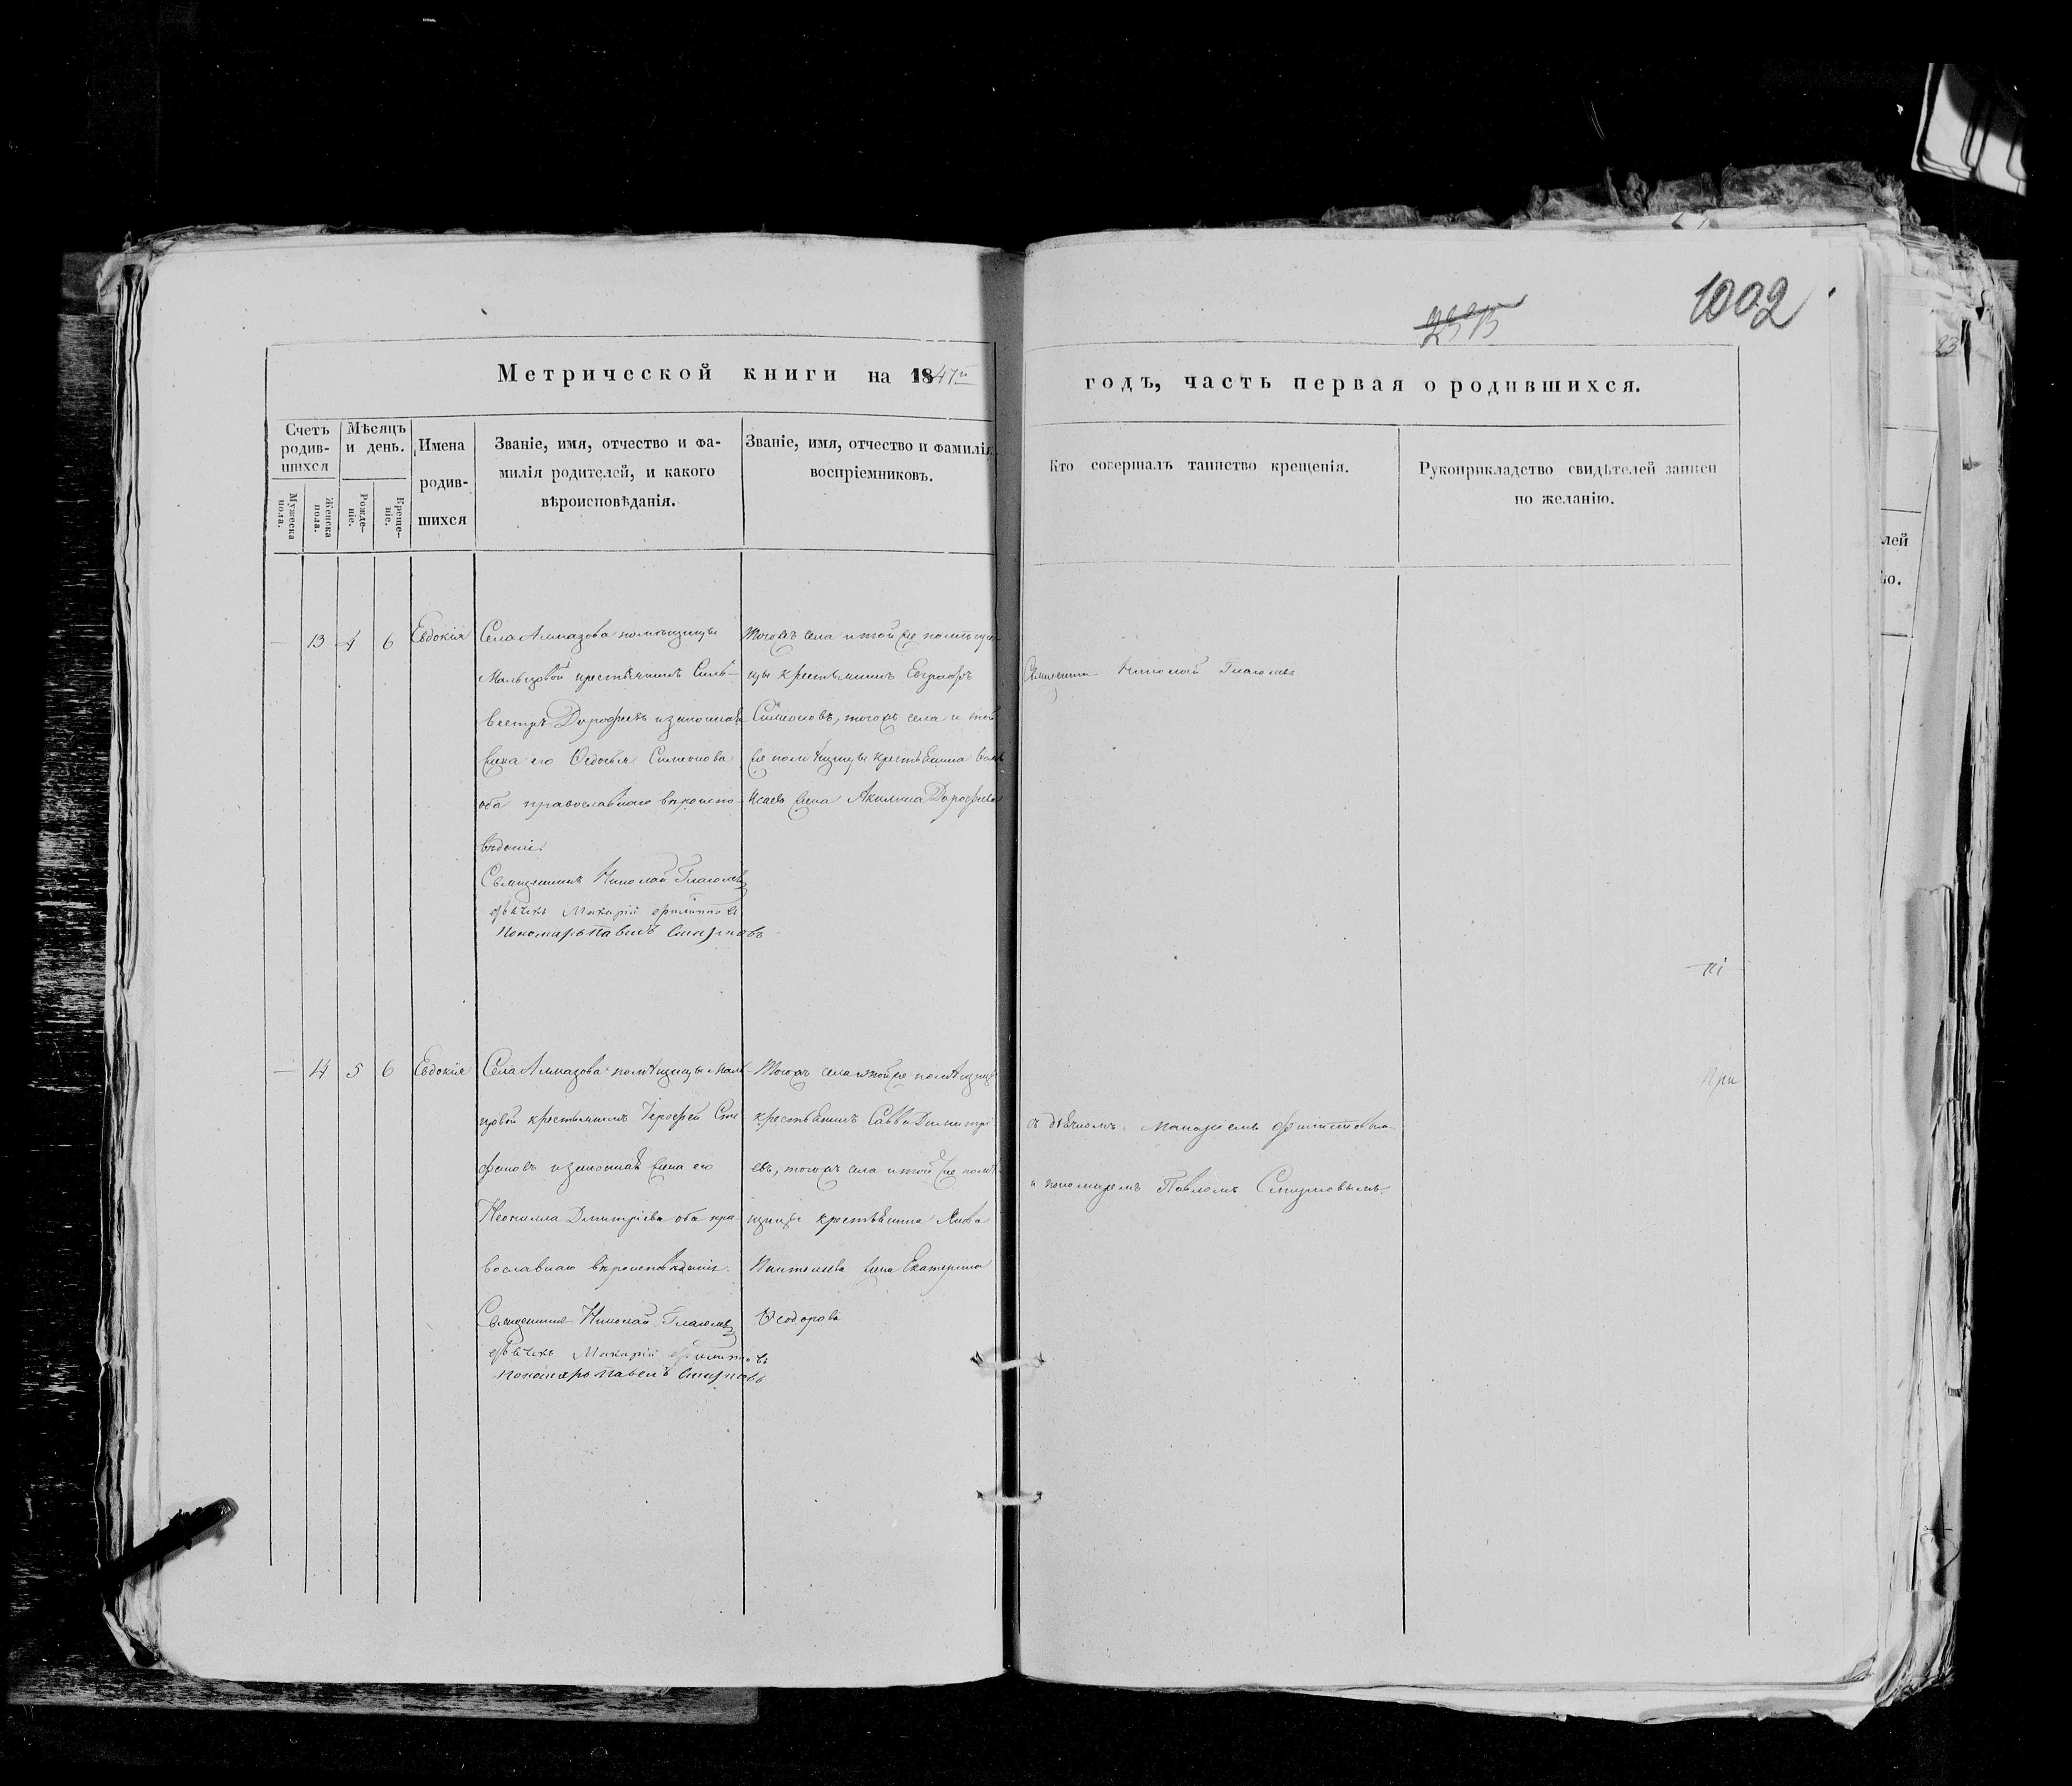 1002
Метрической книги на 1847й
годъ, часть первая о родившихся.
Счетъ родив-
шихся
Мужеска пола.
Женска пола.
Мѣсяцъ
и день.
Рожде-
ніе.
Креще-
ніе.
Имена
родив-
шихся
Званіе, имя, отчество и фа-
милія родителей, и какого
вѣроисповѣданія.
Званіе, имя, отчество и фамилія
воспріемниковъ.
Кто совершалъ таинство крещенія.
Рукоприкладство свидѣтелей записи
по желанію.
13 4 6 Евдокія
Села Алмазова помѣщицы
Мальцовой крестьянинъ Силь-
вестръ Дорофеевъ и законная
жена его Симеонова
оба православнаго вѣроиспо-
вѣданія.
Священникъ Николай Глаголевъ
дьячекъ Макарій Филиповъ
пономарь Павелъ Смирновъ
Тогожъ села и той же помѣщи-
цы крестьянинъ Евграфъ
Симеоновъ, тогожъ села и той
же помѣщицы крестьянина
Исаева жена Акилина Дорофеева
Священникъ Николай Глаголевъ
14 5 6 Евдокія
Села Алмазова помѣщицы Маль-
цовой крестьянинъ Іерофей Сте-
фановъ и законная жена его
Неонилла Дмитріева оба пра-
вославнаго вѣроисповѣданія.
Священникъ Николай Глаголевъ
дьячекъ Макарій Филиповъ
пономарь Павелъ Смирновъ
Тогожъ села и той же помѣщицы
крестьянинъ Савва Димитрі-
евъ, тогожъ села и той же помѣ-
щицы крестьянина
жена Екатерина
Ѳеодорова
съ дьячкомъ Макаріемъ Филиповымъ
и пономаремъ Павломъ Смирновымъ.
При
23
лей
ію.